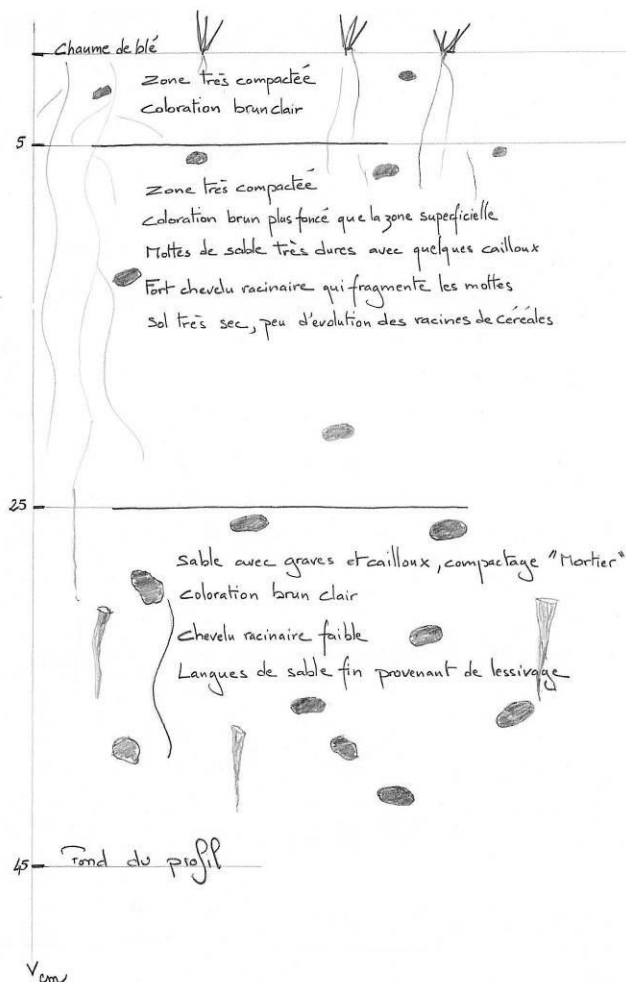 Chaume de blé
Zone très compactée
Coloration brun clair
5
Zone très compactée
Coloration brun plus foncé que la zone superficielle
Mottes de sable très dures avec quelques cailloux
Fort chevelu racinaire qui fragmente les mottes
Sol très sec, peu d'evolution des racines de céréales
25
Sable avec graves et cailloux, compactage "Mortier"
Coloration brun clair
Chevelu racinaire faible
Langues de sable fin provenant de lessivage
45
Fond du profil
V cm